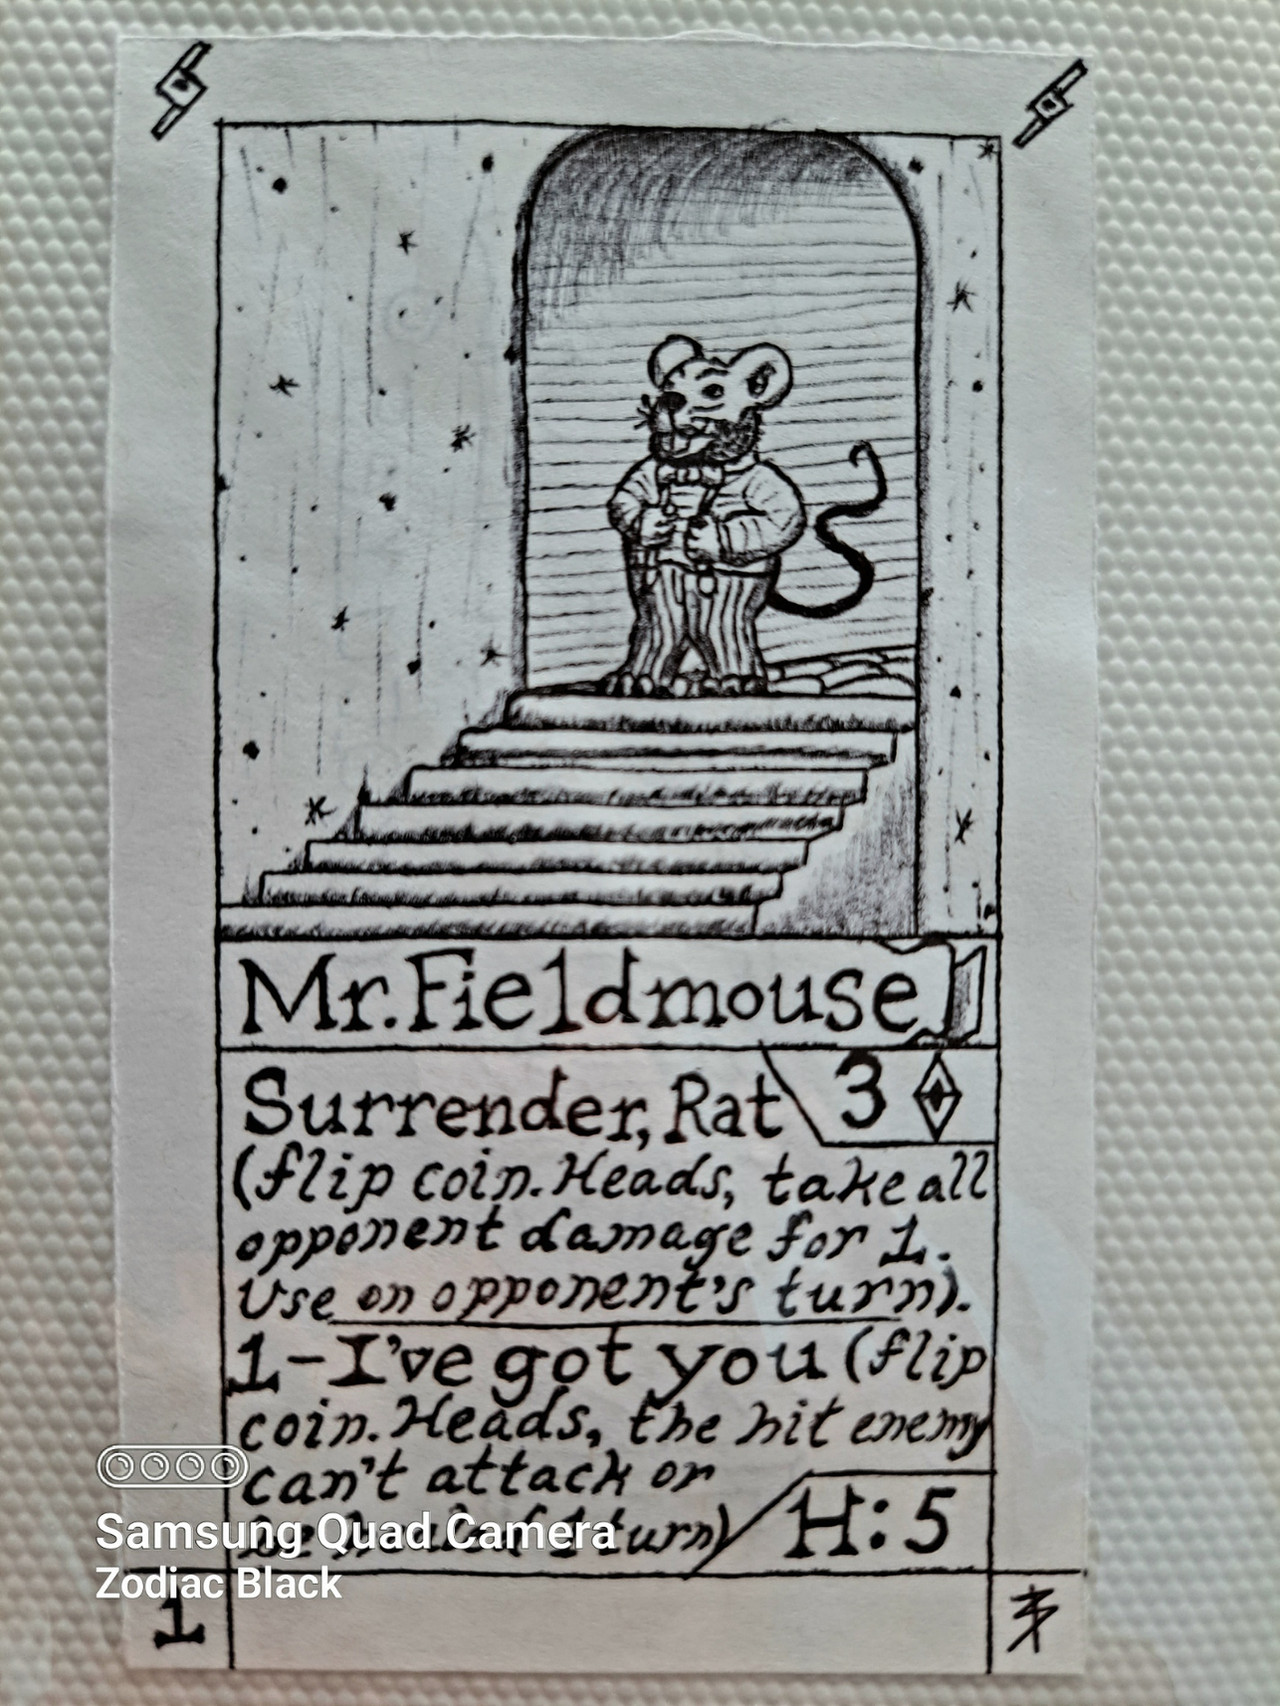 Mr. Fieldmouse
Surrender, Rat
3
(flip coin. Heads, take all
opponent damage for 1.
Use on opponent's turn).
1-I've got you (flip
coin. Heads, the hit enemy
can't attack or
be healed 1 turn)
H:5
Samsung Quad Camera
Zodiac Black
1